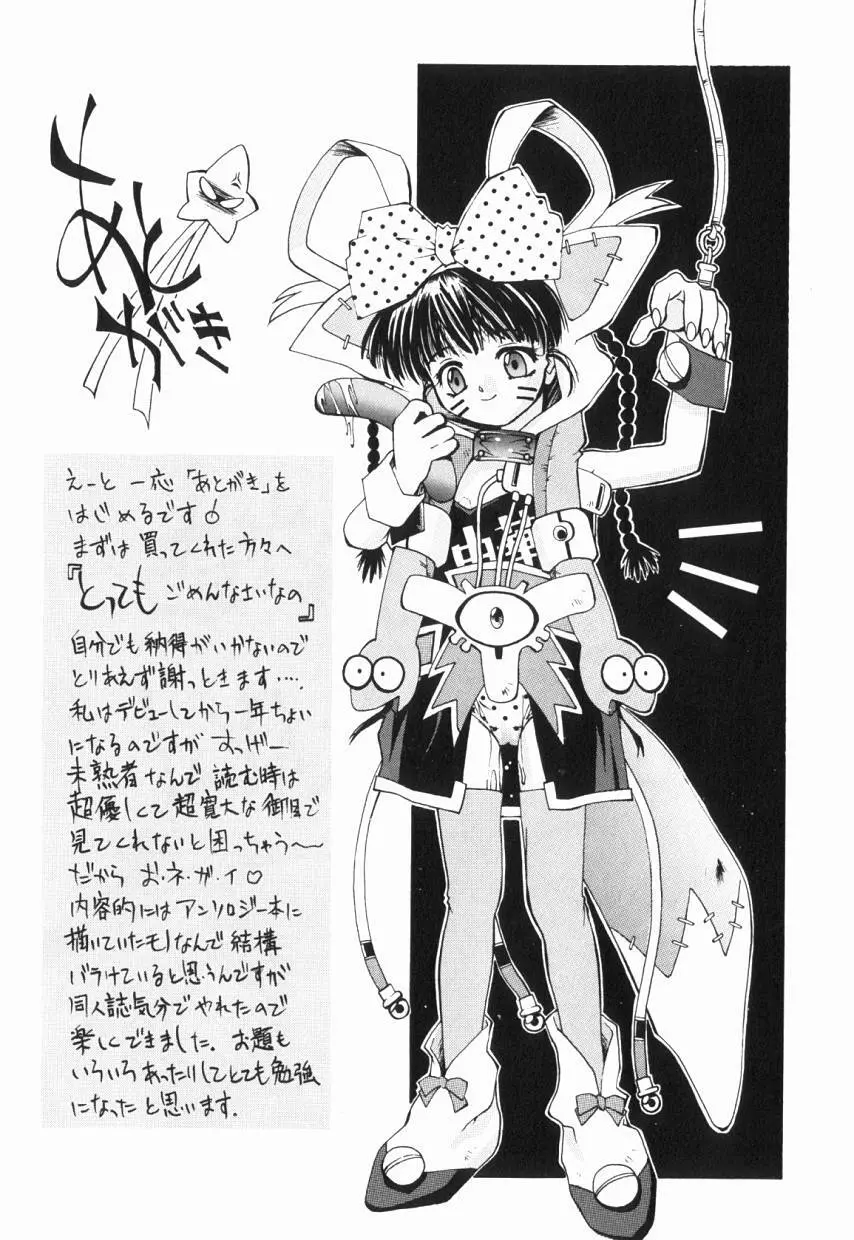 えーと 一応「あとがき」を
はじめるです
まずは買ってくれた方々へ
『とっても ごめんなさいなの』
自分でも納得がいかないので
とりあえず謝っときます‥‥.
私はデビューしてから一年ちょい
になるのですが すっげー
未熟者なんで 読む時は
超優しくて超寛大な御目で
見てくれないと困っちゃう〜
だから お・ネ・ガ・イ♡
内容的にはアンソロジー本に
描いていたモノなんで結構
バラけていると思うんですが
同人誌気分でやれたので
楽しくできました. お題も
いろいろあったりしてとても勉強
になったと思います.
中華